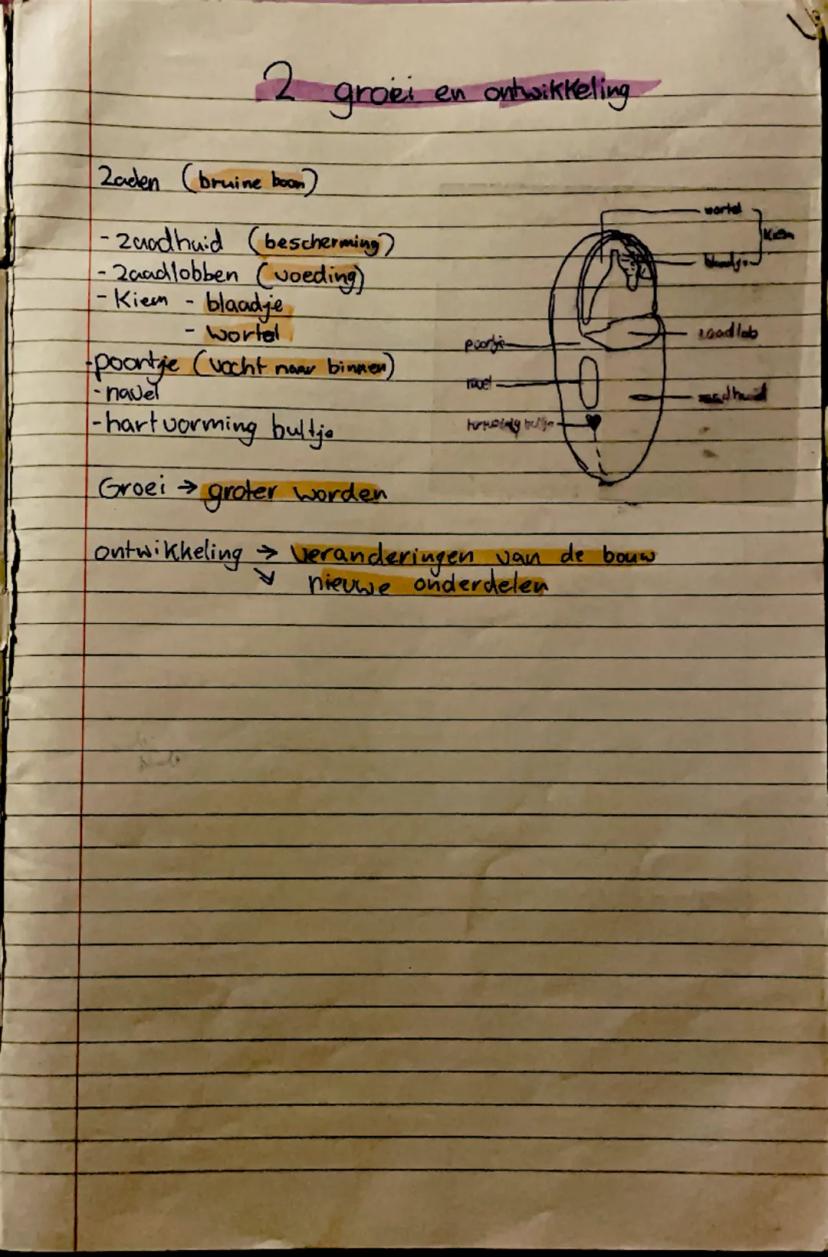 2 groei en ontwikkeling
Zaden (bruine boon)
- zaadhuid (bescherming)
- zaadlobben (voeding)
- Kiem - blaadje
- wortel
- poortje (vocht naar binnen)
- navel
- hartvorming bultje
Groei → groter worden
ontwikkeling → veranderingen van de bouw
↘ nieuwe onderdelen
wortel
Kiem
blaadje
poortje
zaadlob
navel
zaadhuid
hartvorming bultje